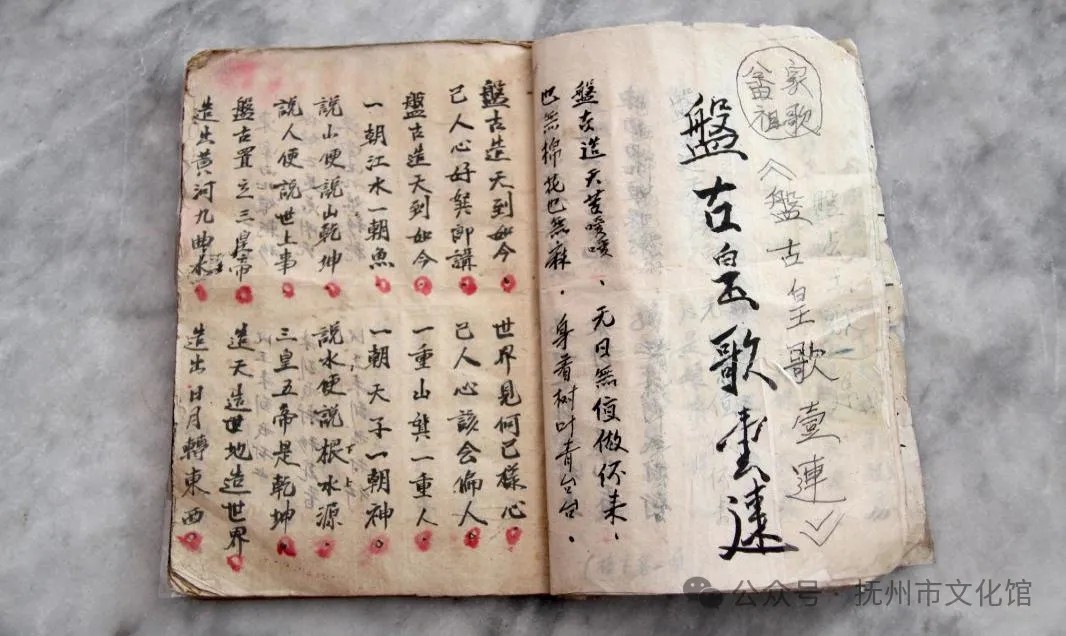 畲家
祖歌
《盤古皇歌壹連》
盤古皇歌壹連
盤古造天苦嗳嗳、无日無做来、
也無棉花也無麻.身着树叶青台台.
盤古造天到如今。世界見何已樣心。
己人心好龔郎講。己人心該会人。
盤古造天到如今。一重山龔一重人。
一朝江水一朝魚。一朝天子一朝神。
說山便說山乾坤。說水便說根水源。
說人便說世上事。三皇五帝是乾坤。
盤古置立三皇帝。造天造地造世界。
造出黄河九曲水。造出日月轉東西。
公众号·抚州市文化馆